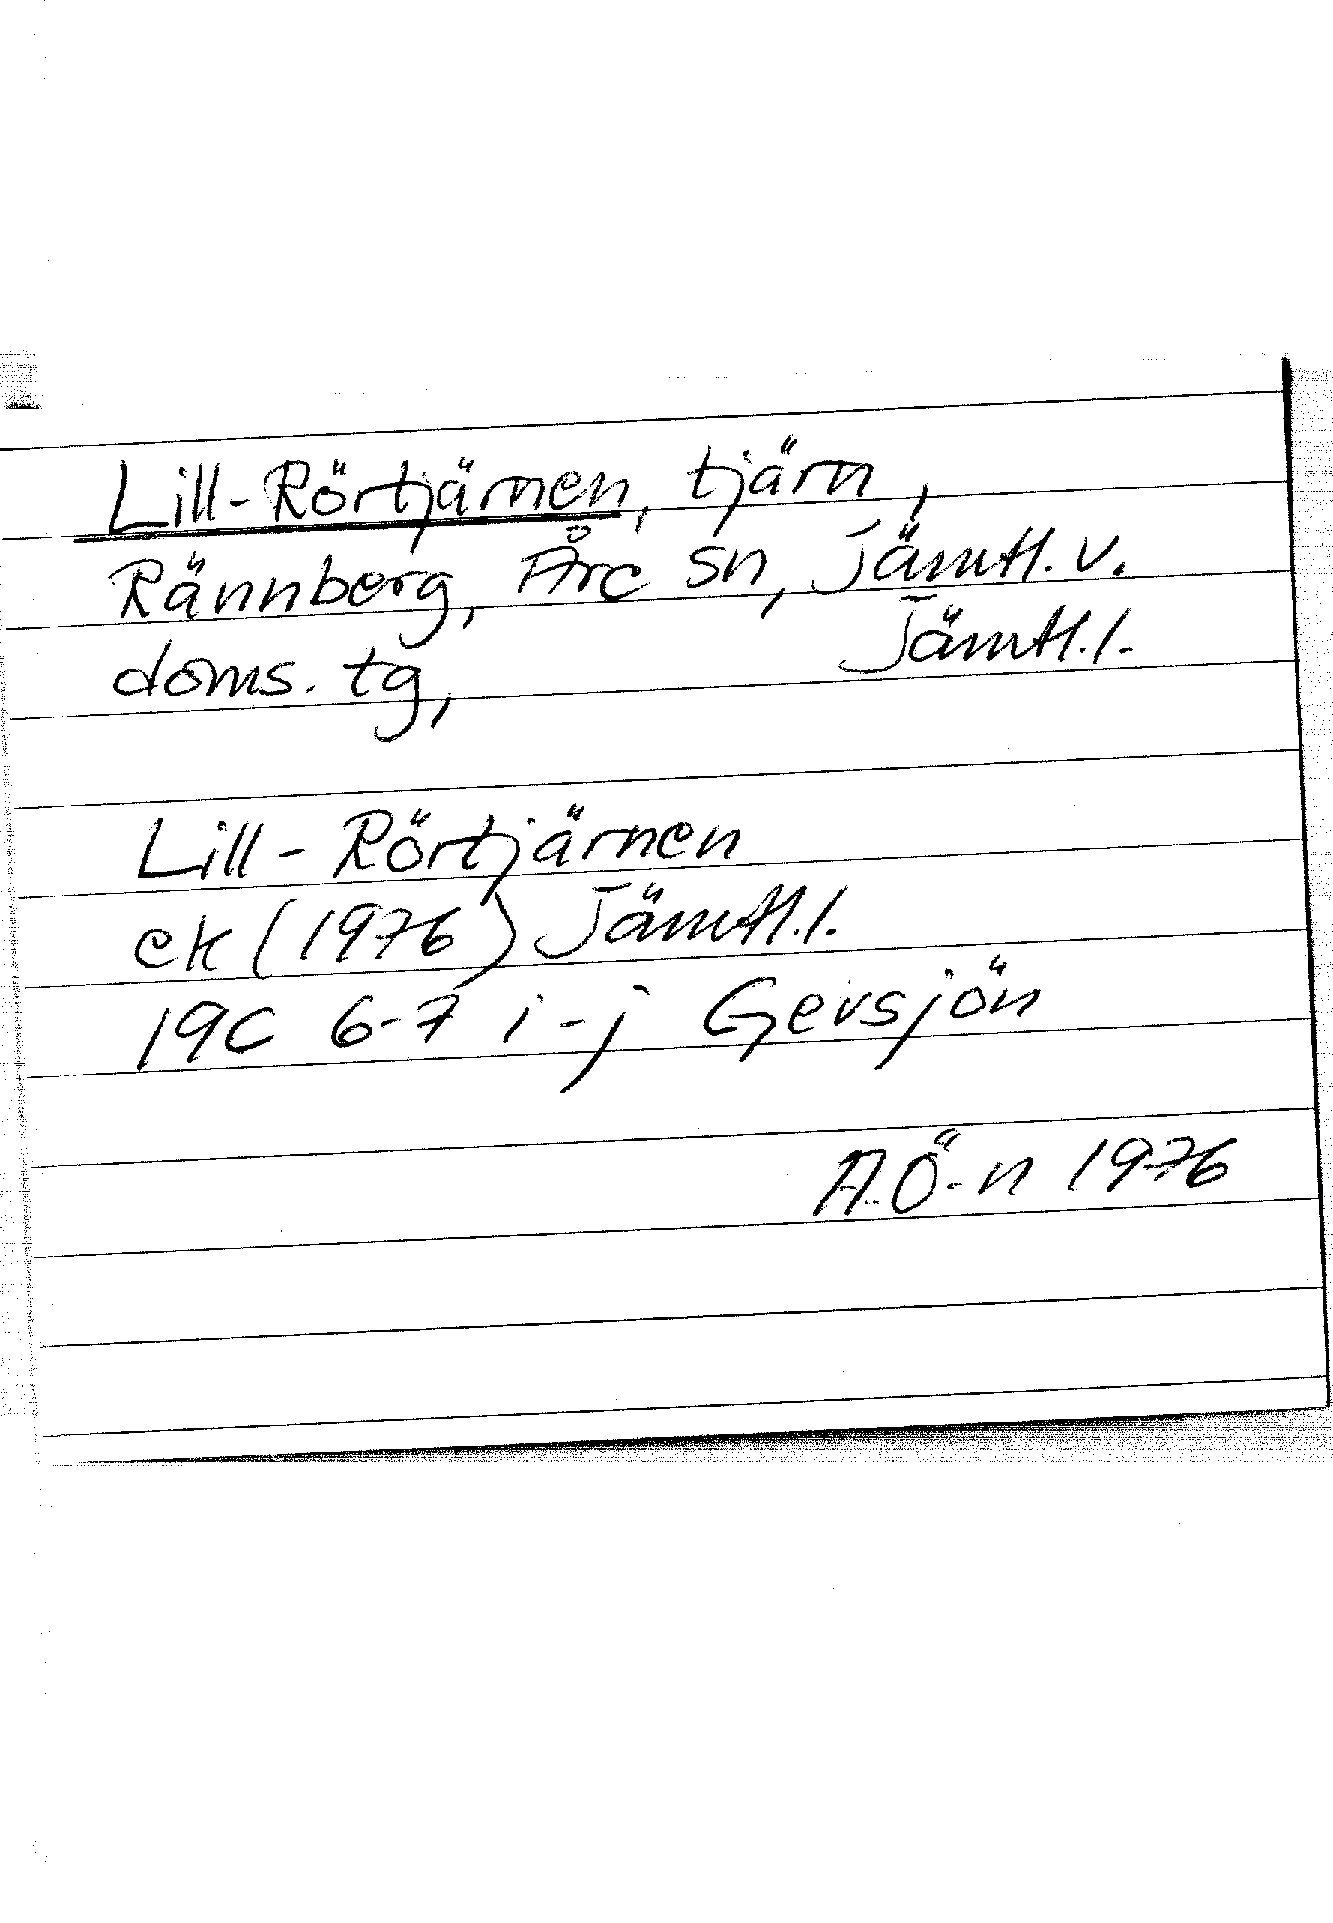 Lill-Rörtjärnen, tjärn,
Rännberg, Åre sn, Jämtl. v.
doms. tg, Jämtl. l.
Lill-Rörtjärnen
ek (1976) Jämtl. l.
19C 6-7 i-j Gevsjön
A.Ö-n 1976